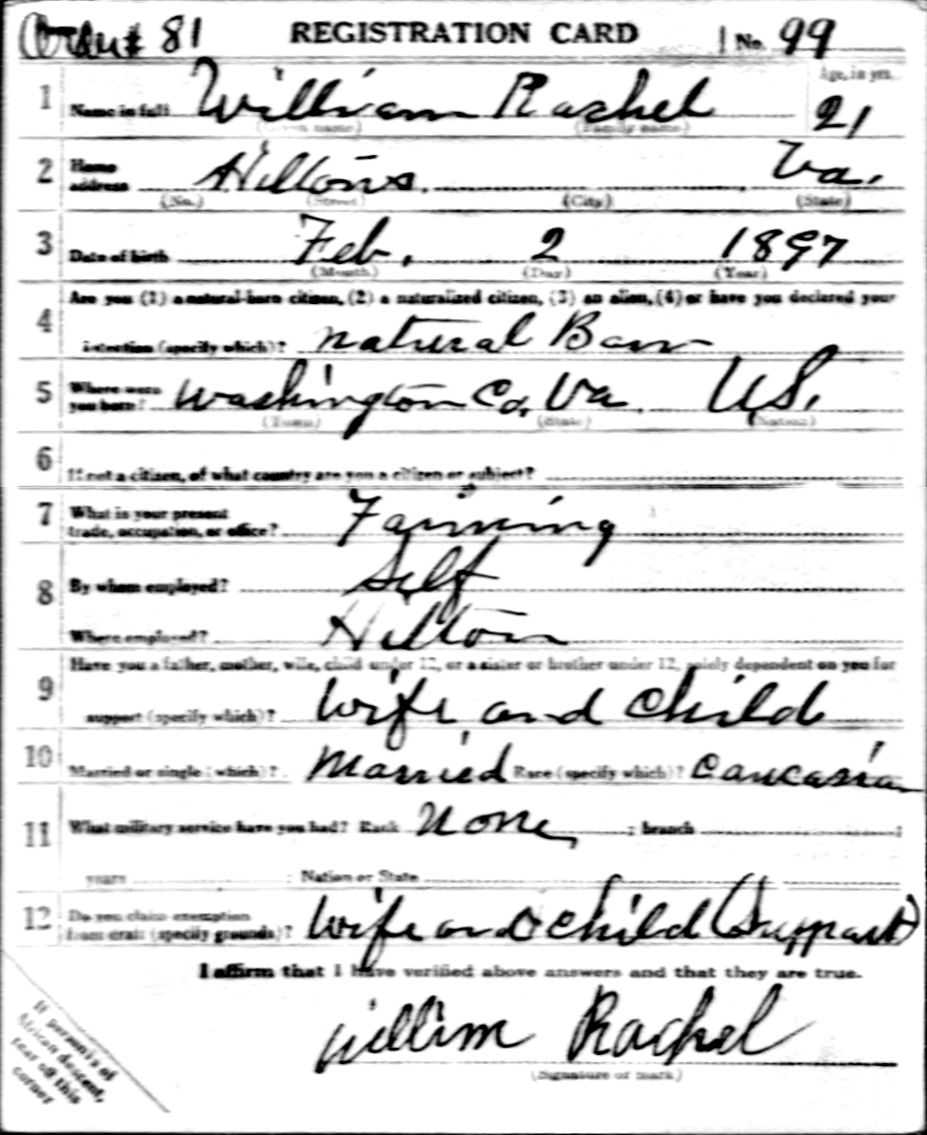 Order # 81 REGISTRATION CARD No. 99
1 Name in full William Rachel Age, in yrs. 21
(Given name) (Family name)
2 Home address Hiltons. Va.
(No.) (Street) (City) (State)
3 Date of birth Feb. 2 1897
(Month) (Day) (Year)
Are you (1) a natural-born citizen, (2) a naturalized citizen, (3) an alien, (4) or have you declared your
4 intention (specify which)? natural Born
5 Where were you born? Washington Co, Va. U.S.
(Town) (State) (Nation)
6 If not a citizen, of what country are you a citizen or subject?
7 What is your present trade, occupation, or office? Farming
8 By whom employed? Self
Where employed? Hilton
Have you a father, mother, wife, child under 12, or a sister or brother under 12, solely dependent on you for
9 support (specify which)? wife and child
10 Married or single (which)? Married Race (specify which)? Caucasian
11 What military service have you had? Rank None ; branch ;
years ; Nation or State
12 Do you claim exemption from draft (specify grounds)? Wife and child (Suppart)
I affirm that I have verified above answers and that they are true.
Willim Rachel
(Signature or mark)
If person is of
African descent,
tear off this
corner